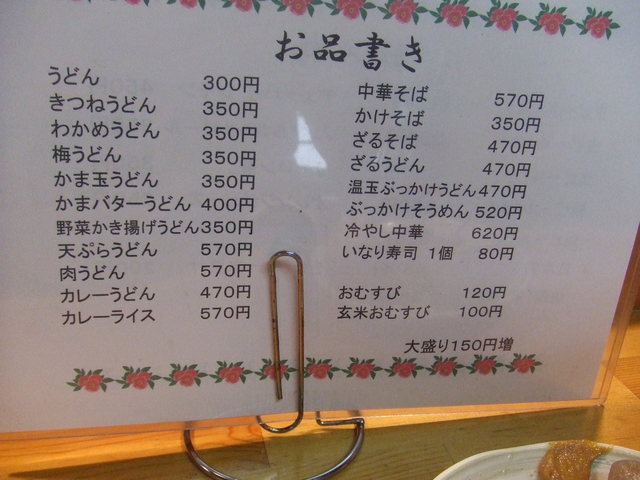 お品書き
うどん 300円
きつねうどん 350円
わかめうどん 350円
梅うどん 350円
かま玉うどん 350円
かまバターうどん 400円
野菜かき揚げうどん 350円
天ぷらうどん 570円
肉うどん 570円
カレーうどん 470円
カレーライス 570円
中華そば 570円
かけそば 350円
ざるそば 470円
ざるうどん 470円
温玉ぶっかけうどん 470円
ぶっかけそうめん 520円
冷やし中華 620円
いなり寿司 1個 80円
おむすび 120円
玄米おむすび 100円
大盛り150円増